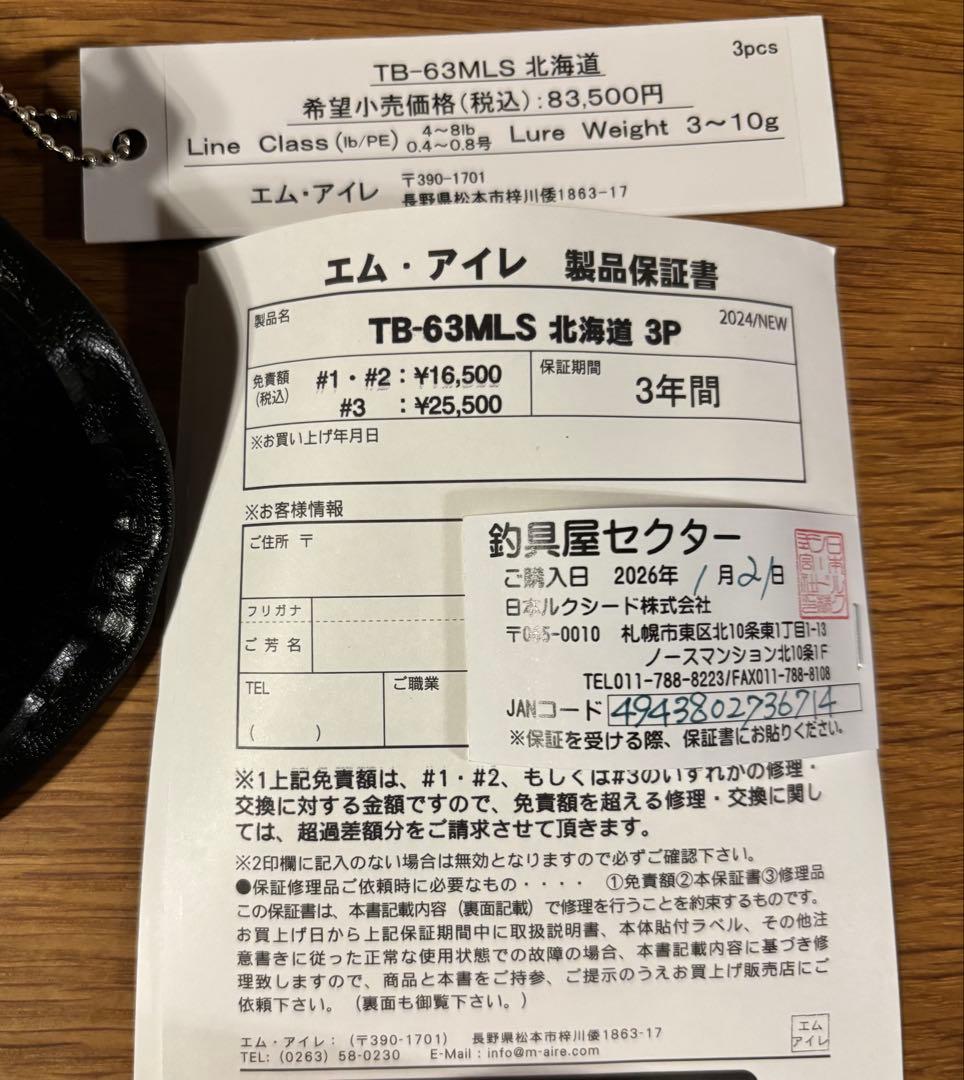 3pcs
TB-63MLS 北海道
希望小売価格(税込):83,500円
Line Class(lb/PE) 4〜8lb 0.4〜0.8号 Lure Weight 3〜10g
エム・アイレ 〒390-1701
長野県松本市梓川倭1863-17
エム・アイレ 製品保証書
製品名 TB-63MLS 北海道 3P 2024/NEW
免責額(税込) #1・#2:¥16,500
#3 :¥25,500
保証期間 3年間
※お買い上げ年月日
※お客様情報
ご住所 〒
フリガナ
ご芳名
TEL
( )
ご職業
釣具屋セクター
ご購入日 2026年 1月21日
日本ルクシード株式会社
〒065-0010 札幌市東区北10条東1丁目1-13
ノースマンション北10条1F
TEL011-788-8223/FAX011-788-8108
JANコード 4943802736714
※保証を受ける際、保証書にお貼りください。
※1上記免責額は、#1・#2、もしくは#3のいずれかの修理・
交換に対する金額ですので、免責額を超える修理・交換に関し
ては、超過差額分をご請求させて頂きます。
※2印欄に記入のない場合は無効となりますので必ずご確認下さい。
●保証修理品ご依頼時に必要なもの・・・・ ①免責額②本保証書③修理品
この保証書は、本書記載内容(裏面記載)で修理を行うことを約束するものです。
お買上げ日から上記保証期間中に取扱説明書、本体貼付ラベル、その他注
意書きに従った正常な使用状態での故障の場合、本書記載内容に基づき修
理致しますので、商品と本書をご持参、ご提示のうえお買上げ販売店にご
依頼下さい。(裏面も御覧下さい。)
エム・アイレ:(〒390-1701) 長野県松本市梓川倭1863-17
TEL: (0263) 58-0230 E-Mail : info@m-aire.com
エム
アイレ